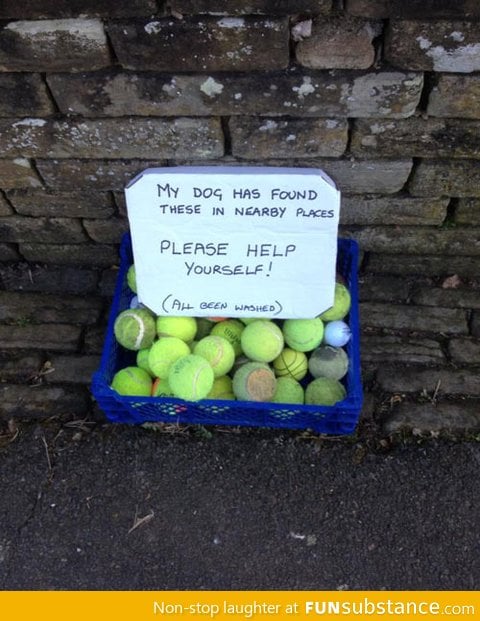 My dog has found
these in nearby places
Please help
yourself!
(All been washed)
Non-stop laughter at FUNsubstance.com